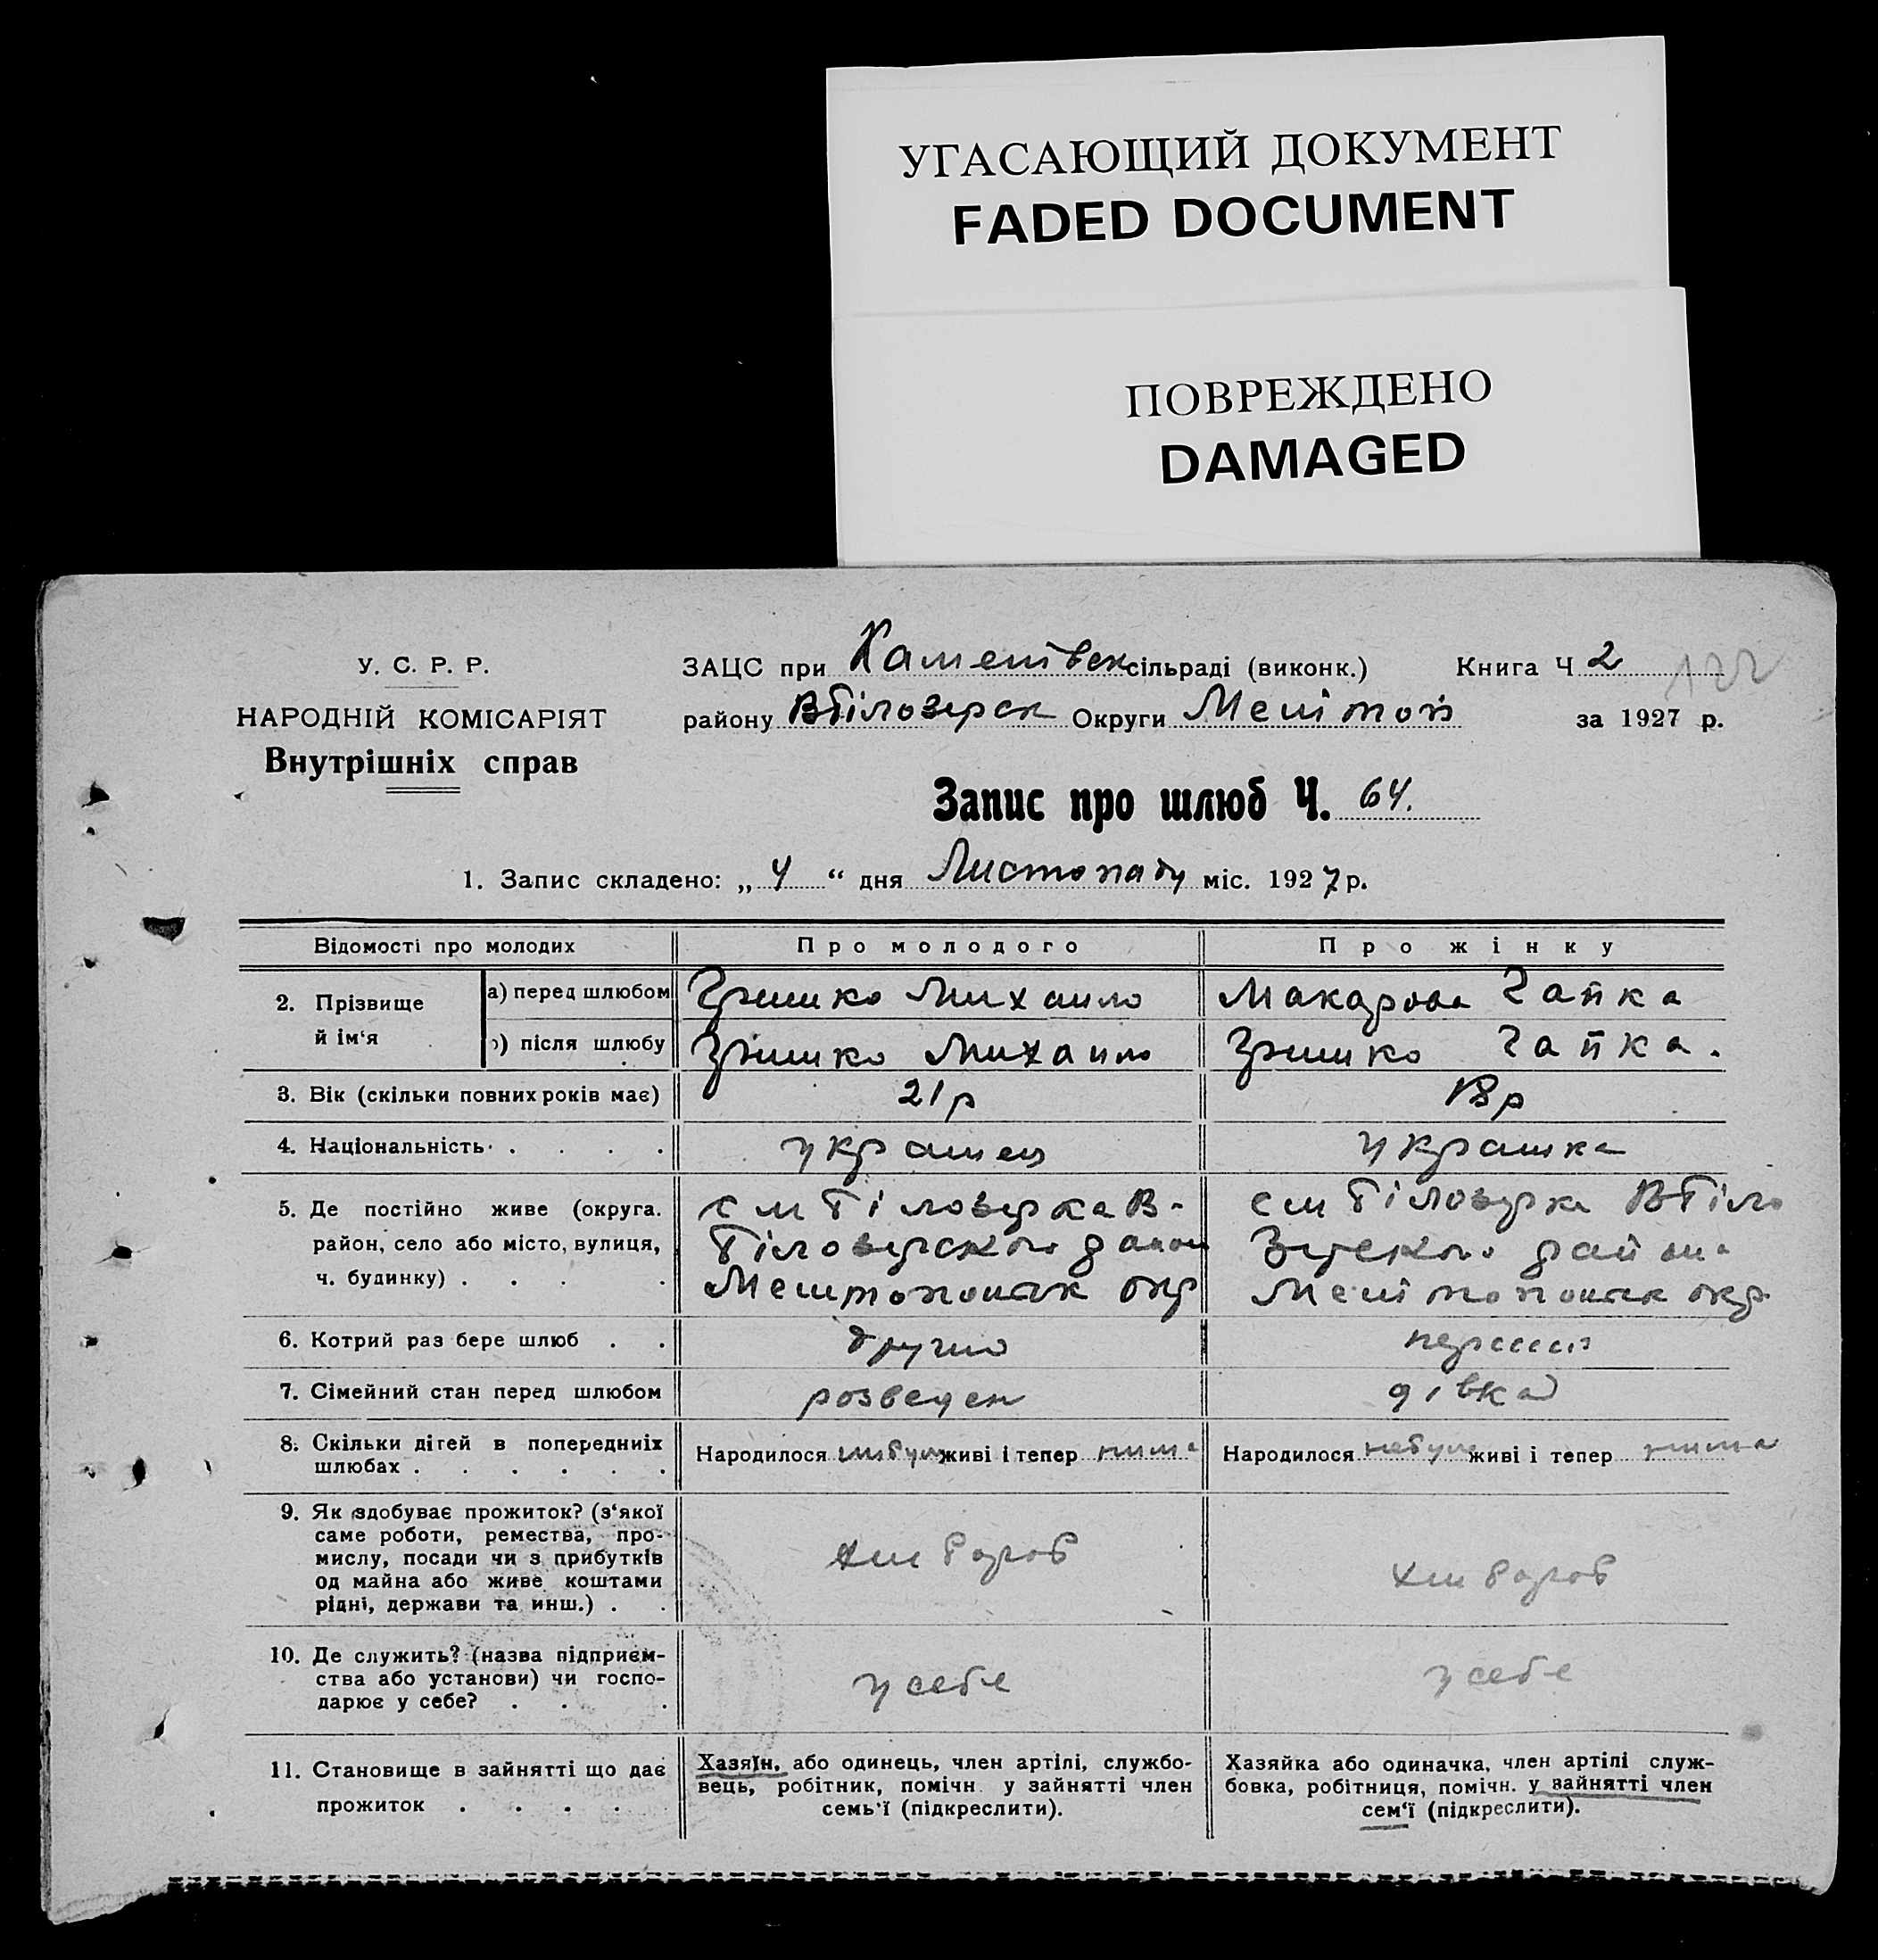 УГАСАЮЩИЙ ДОКУМЕНТ
FADED DOCUMENT
ПОВРЕЖДЕНО
DAMAGED
У. С. Р. Р.
НАРОДНІЙ КОМІСАРІЯТ
Внутрішніх справ
ЗАЦС при сільраді (виконк.) Книга Ч 2 122
району ВБілозерск Округи Мелітоп за 1927 р.
Запис про шлюб Ч. 64.
1. Запис складено: „ 4 “ дня Листопаду міс. 1927 р.
Відомості про молодих Про молодого Про жінку
2. Прізвище й ім‘я
а) перед шлюбом Михаило Макарова Гапка
) після шлюбу Михаило Гапка.
3. Вік (скільки повних років має) 21 р 18 р
4. Національність . . . . українец українка
5. Де постійно живе (округа. см Білозерка В- см Білозерка ВБіло
район, село або місто, вулиця, Білозерского району зерского района
ч. будинку) . . . . Мелитопольск окр Мелітопольск окр.
6. Котрий раз бере шлюб . . другий перший
7. Сімейний стан перед шлюбом розведен дівка
8. Скільки дітей в попередніх
шлюбах . . . . . .
Народилося небуло живі і тепер нима Народилося небуло живі і тепер нима
9. Як здобуває прожиток? (з‘якої
саме роботи, ремества, про-
мислу, посади чи з прибутків
од майна або живе коштами
рідні, держави та инш.) . .
хлібороб хлібороб
10. Де служить? (назва підприєм-
ства або установи) чи госпо-
дарює у себе? . . .
у себе у себе
11. Становище в зайнятті що дає
прожиток . . . .
Хазяїн, або одинець, член артілі, службо-
вець, робітник, помічн. у зайнятті член
семь‘ї (підкреслити).
Хазяйка або одиначка, член артілі служ-
бовка, робітниця, помічн. у зайнятті член
сем‘ї (підкреслити).